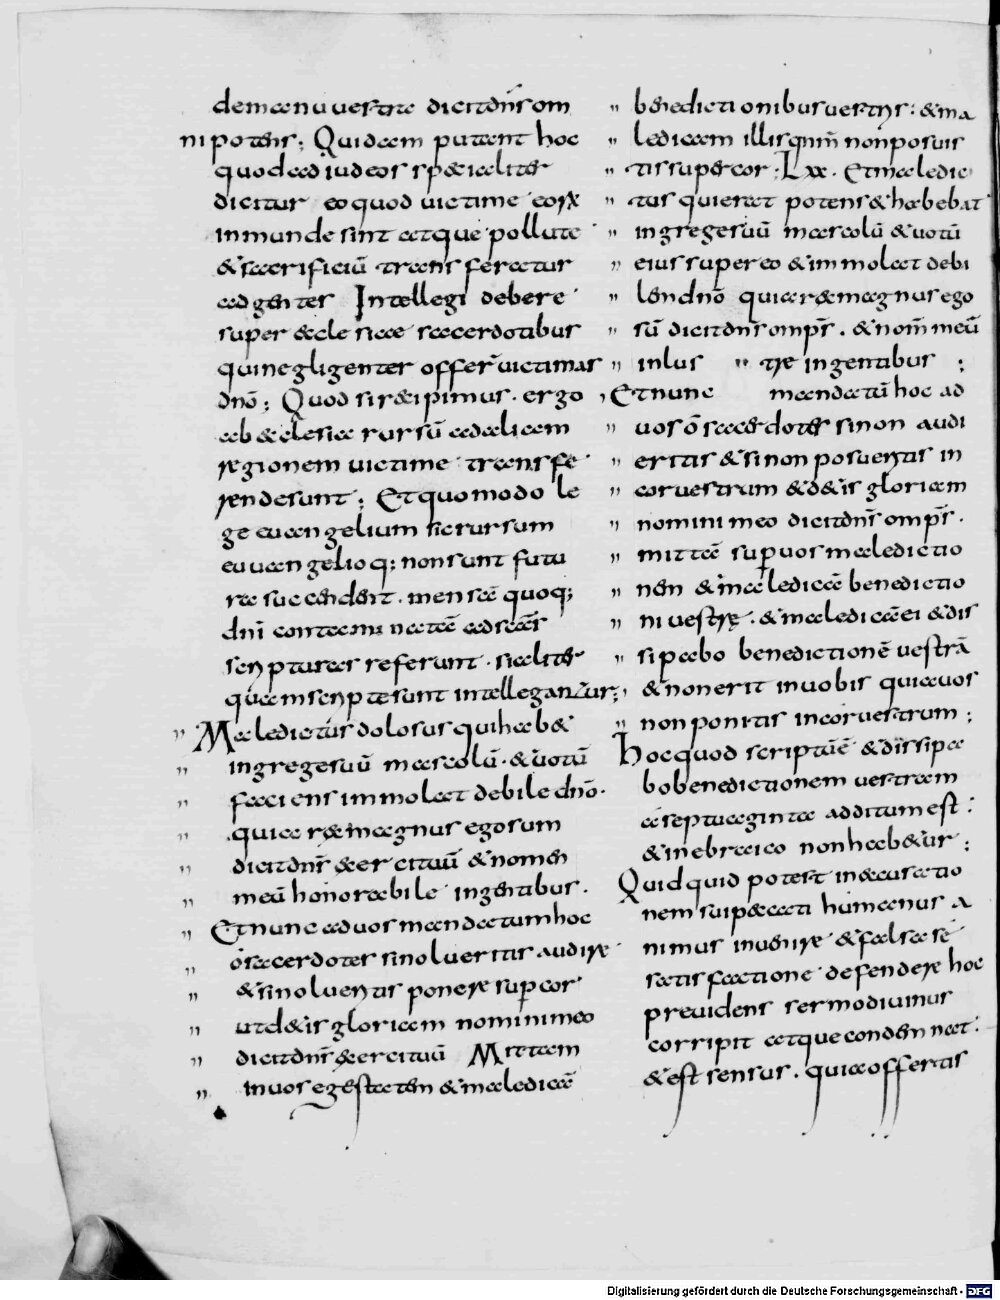 demanu uestra dicit dn̄s om
nipotens; Quidam putant hoc
quod ad iudeos specialiter
dicitur eo quod uictime eorx
inmunde sint atque pollute
& sacrificiū transferatur
ad genter Intellegi debere
super &clesiae sacerdotibus
qui neglegenter offer̄ uictimas
dnō; Quod si recipimus. ergo
ab &clesia rursū ad aliam
regionem uictime transfe
rendesunt; Et quomodo le
ge euangelium sic rursum
euuangelio q; non sunt futu
ra succendent. mensā quoq;
dnī contaminatā ad sc̄ās
scripturas referunt. si aliter
quam scripte sunt intellegantur;
" Maledictus dolosus qui hab&
" in grege suū masculū. & uotū
" faciens immolat debile dnō.
" quia rex magnus ego sum
" dicit dn̄s exercituū & nomen
" meū honorabile in gentibus.
" Et nunc ad uos mandatum hoc
" ó sacerdotes si nolueritis audire
" & si nolueritis ponere sup cor
" ut d&is gloriam nomini meo
" dicit dn̄s exercituū Mittam
" in uos egestatem & maledicā
" benedictionibus uestris: & ma
" ledicam illis qnm̄ non posuis
" tis super cor; Lxx. Et maledic
" tus qui erat potens & habebat
" in grege suū masculū & uotū
" eius super eo & immolat debi
" len dnō quia rex magnus ego
" sū dicit dn̄s omps̄. & nom̄ meū
" inlus " tre in gentibus ;
" Et nunc mandatū hoc ad
" uos ō sacerdotes si non audi
" eritis & si non posueritis in
" cor uestrum & d&is gloriam
" nomini meo dicit dn̄s omps̄.
" mittā sup uos maledictio
" nen & maledicā benedictio
" ni uestrę. & maledicā ei & dis
" sipabo benedictionē uestrā
" & non erit in uobis quia uos
" non ponitis in cor uestrum;
Hoc quod scriptū ē & dissipa
bo benedictionem uestram
a septuaginta additum est:
& in ebraico non hab&ur;
Quidquid potest in excusatio
nem sui peccati humanus a
nimus inuenire & falsa se
satisfactione defendere hoc
preuidens sermo diuinus
corripit atque condemnat:
& est sensus. quia offertis